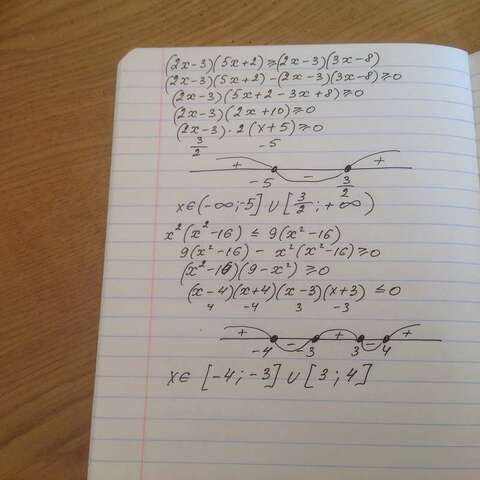 (2x-3)(5x+2)≥(2x-3)(3x-8)
(2x-3)(5x+2)-(2x-3)(3x-8)≥0
(2x-3)(5x+2-3x+8)≥0
(2x-3)(2x+10)≥0
(2x-3)·2(x+5)≥0
3/2 -5
+ - +
-5 3/2
x∈(-∞;-5]∪[3/2;+∞)
x²(x²-16)≤9(x²-16)
9(x²-16)-x²(x²-16)≥0
(x²-16)(9-x²)≥0
(x-4)(x+4)(x-3)(x+3)≤0
4 -4 3 -3
+ - + - +
-4 -3 3 4
x∈[-4;-3]∪[3;4]